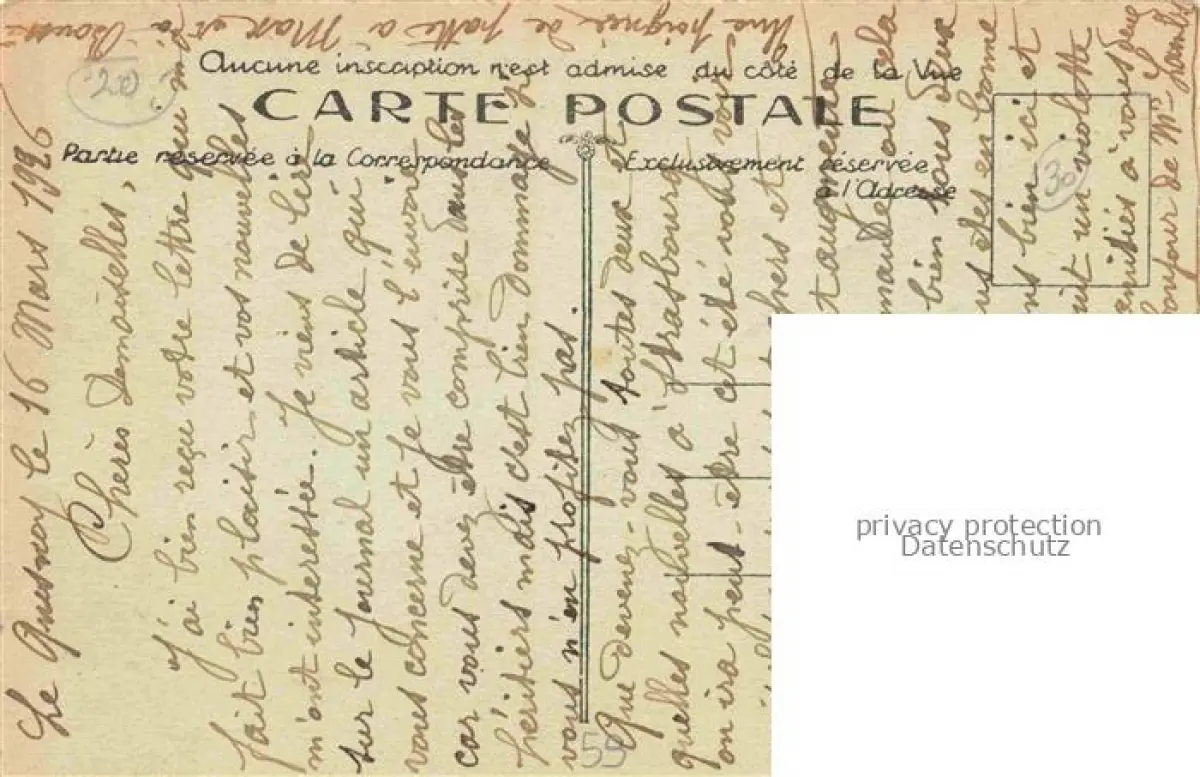 Aucune inscription n'est admise du côté de la Vue
CARTE POSTALE
Partie réservée à la Correspondance
Exclusivement réservée
à l'Adresse
20
30
55
Le Quesnoy le 16 Mars 1926
Chères Demoiselles,
J'ai bien reçu votre lettre qui m'a
fait bien plaisir et vos nouvelles
m'ont interessée. Je viens de lire
sur le journal un article qui
vous concerne et je vous l'envoie
car vous devez être comprise dans les
héritiers mais c'est bien dommage si
vous n'en profitez pas.
Que devenez-vous toutes deux et
quelles nouvelles à Strasbourg
on ira peut-être cet été vous voir
chers et
t augmente
maude cela
bien tous deux
us êtes en bonne
ns bien ici et
uit un violette
amitiés à vous deux
bonjour de Mr
Une poignée de patte à Max et à
privacy protection
Datenschutz